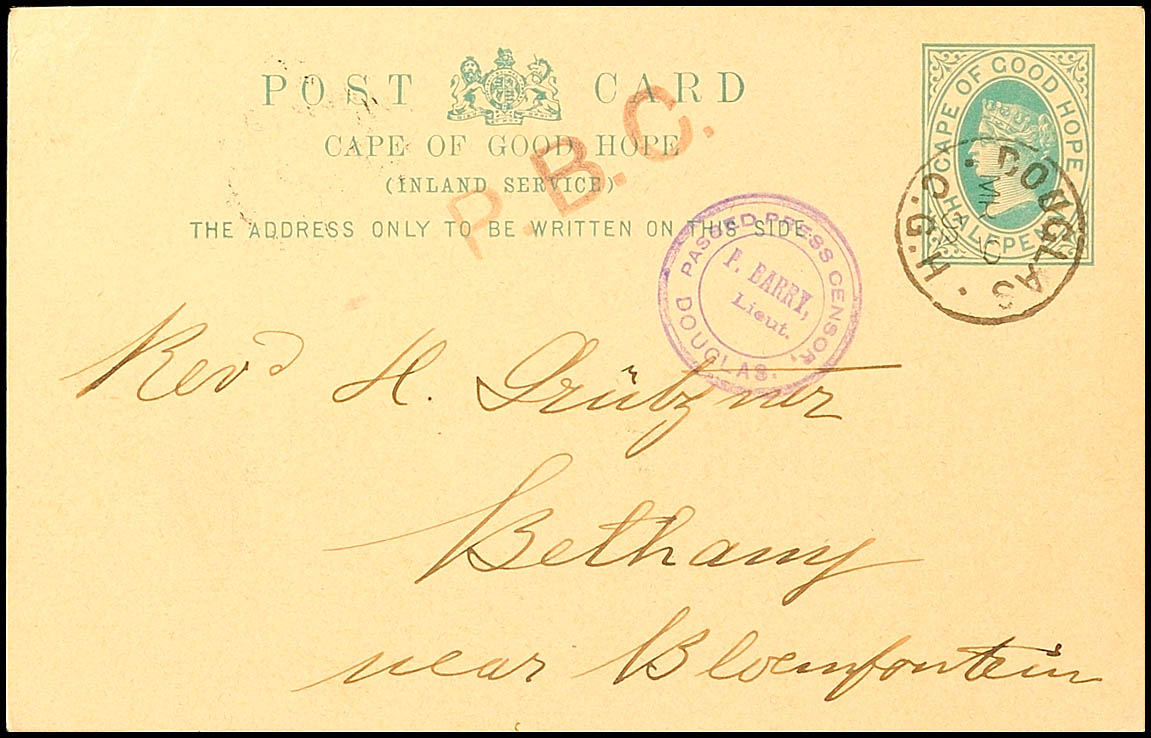 POST CARD
CAPE OF GOOD HOPE
(INLAND SERVICE)
THE ADDRESS ONLY TO BE WRITTEN ON THIS SIDE.
P.B.C.
CAPE OF GOOD HOPE
HALFPENNY
DOUGLAS · H.G.O.
PASSED PRESS CENSOR,
P. BARRY,
Lieut.
DOUGLAS.
Revd H. Grützner
Bethany
near Bloemfontein